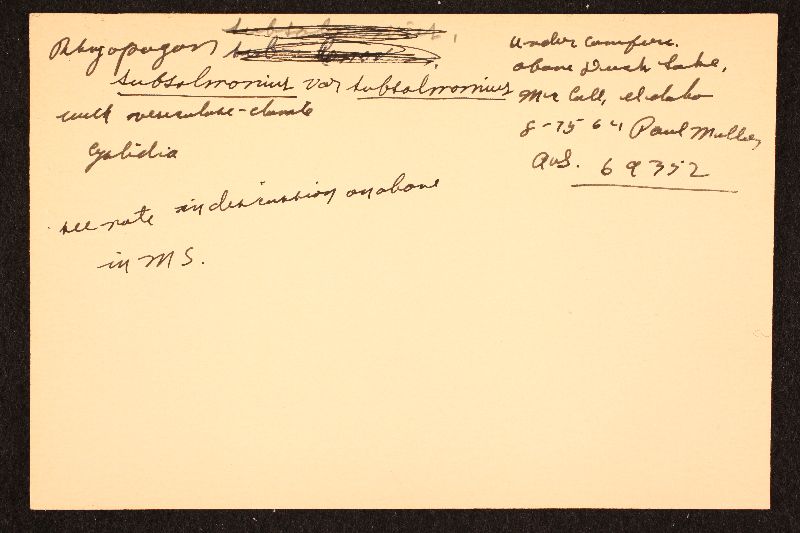 Rhizopogon
subsalmonius var subsalmonius
with vesiculose-clavate
cystidia
see note in discussion on above
in MS.
under conifers.
above Duck Lake,
Mc Call, Idaho
8-15 64 Paul
AHS. 69352